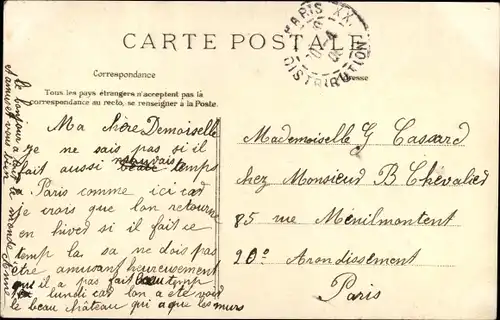 PARIS XX
DISTRIBUTION
CARTE POSTALE
Correspondance
Adresse
Tous les pays étrangers n'acceptent pas la
correspondance au recto, se renseigner à la Poste.
Ma chère Demoiselle
je ne sais pas si il
fait aussi mauvais temps
a Paris comme ici car
je crois que lon retourne
en hiver si il fait se
temp la sa ne dois pas
être amusant heureusement
qui il a pas fait temp
lundi car lon a ete voir
le beau château qui a que les murs
le bonjour a tout le monde
amusez vous bien
Mademoiselle G Cassard
chez Monsieur B Chevalier
85 rue Ménilmontent
20e Arondissement
Paris